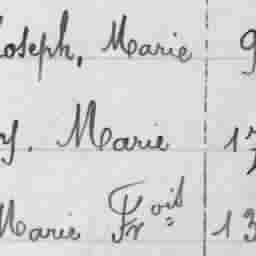 Joseph, Marie 9
y. Marie 17
Marie Froit 13